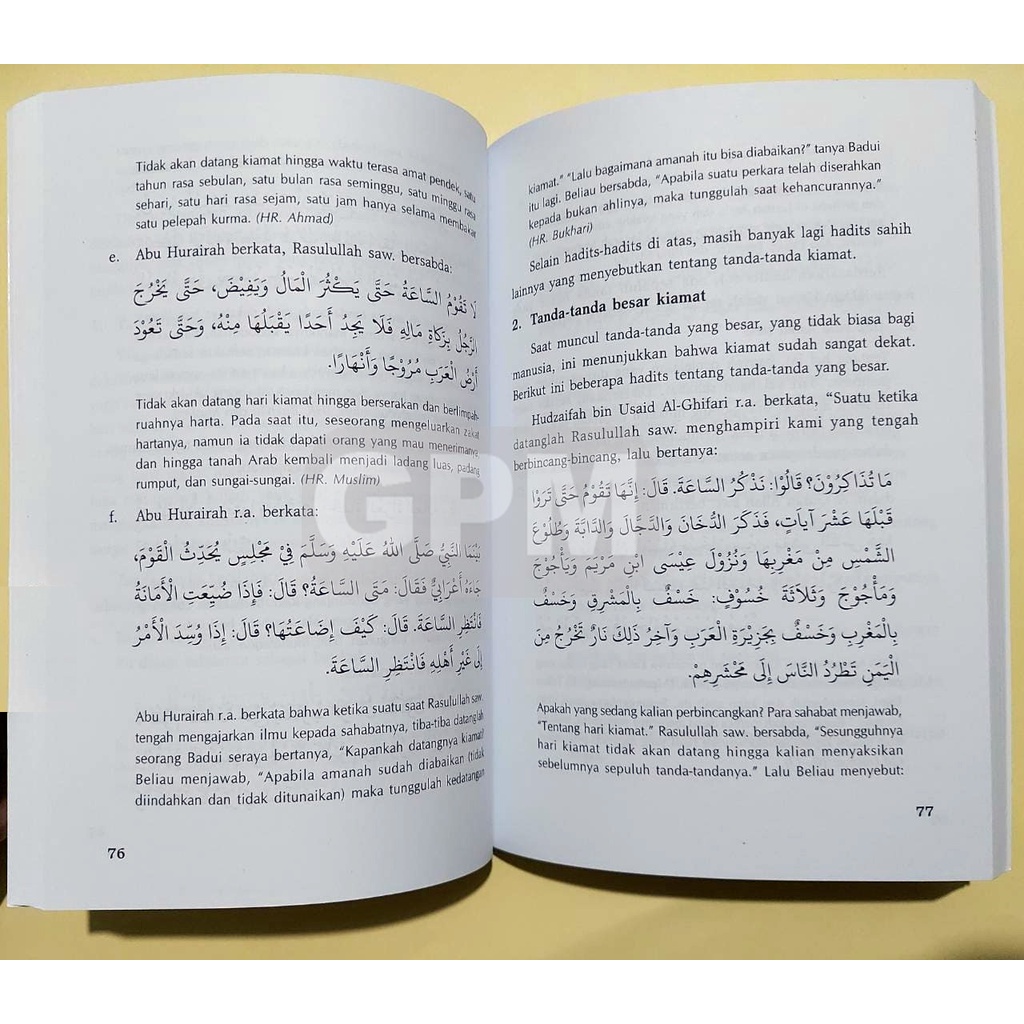 Tidak akan datang kiamat hingga waktu terasa amat pendek, satu
tahun rasa sebulan, satu bulan rasa seminggu, satu minggu rasa
sehari, satu hari rasa sejam, satu jam hanya selama membakar
satu pelepah kurma. (HR. Ahmad)
e. Abu Hurairah berkata, Rasulullah saw. bersabda:
لَا تَقُوْمُ السَّاعَةُ حَتَّى يَكْثُرَ الْمَالُ وَيَفِيْضَ، حَتَّى يَخْرُجَ
الرَّجُلُ بِزَكَاةِ مَالِهِ فَلَا يَجِدُ أَحَدًا يَقْبَلُهَا مِنْهُ، وَحَتَّى تَعُوْدَ
أَرْضُ الْعَرَبِ مُرُوْجًا وَأَنْهَارًا.
Tidak akan datang hari kiamat hingga berserakan dan berlimpah-
ruahnya harta. Pada saat itu, seseorang mengeluarkan zakat
hartanya, namun ia tidak dapati orang yang mau menerimanya,
dan hingga tanah Arab kembali menjadi ladang luas, padang
rumput, dan sungai-sungai. (HR. Muslim)
f. Abu Hurairah r.a. berkata:
بَيْنَمَا النَّبِيُّ صَلَّى اللهُ عَلَيْهِ وَسَلَّمَ فِيْ مَجْلِسٍ يُحَدِّثُ الْقَوْمَ،
جَاءَهُ أَعْرَابِيٌّ فَقَالَ: مَتَى السَّاعَةُ؟ قَالَ: فَإِذَا ضُيِّعَتِ الْأَمَانَةُ
فَانْتَظِرِ السَّاعَةَ. قَالَ: كَيْفَ إِضَاعَتُهَا؟ قَالَ: إِذَا وُسِّدَ الْأَمْرُ
إِلَى غَيْرِ أَهْلِهِ فَانْتَظِرِ السَّاعَةَ.
Abu Hurairah r.a. berkata bahwa ketika suatu saat Rasulullah saw.
tengah mengajarkan ilmu kepada sahabatnya, tiba-tiba datanglah
seorang Badui seraya bertanya, “Kapankah datangnya kiamat?
Beliau menjawab, “Apabila amanah sudah diabaikan (tidak
diindahkan dan tidak ditunaikan) maka tunggulah kedatangan
76
kiamat.” “Lalu bagaimana amanah itu bisa diabaikan?” tanya Badui
itu lagi. Beliau bersabda, “Apabila suatu perkara telah diserahkan
kepada bukan ahlinya, maka tunggulah saat kehancurannya.”
(HR. Bukhari)
Selain hadits-hadits di atas, masih banyak lagi hadits sahih
lainnya yang menyebutkan tentang tanda-tanda kiamat.
2. Tanda-tanda besar kiamat
Saat muncul tanda-tanda yang besar, yang tidak biasa bagi
manusia, ini menunjukkan bahwa kiamat sudah sangat dekat.
Berikut ini beberapa hadits tentang tanda-tanda yang besar.
Hudzaifah bin Usaid Al-Ghifari r.a. berkata, “Suatu ketika
datanglah Rasulullah saw. menghampiri kami yang tengah
berbincang-bincang, lalu bertanya:
مَا تُذَاكِرُوْنَ؟ قَالُوْا: نَذْكُرُ السَّاعَةَ. قَالَ: إِنَّهَا تَقُوْمُ حَتَّى تَرَوْا
قَبْلَهَا عَشْرَ آيَاتٍ، فَذَكَرَ الدُّخَانَ وَالدَّجَّالَ وَالدَّابَّةَ وَطُلُوْعَ
الشَّمْسِ مِنْ مَغْرِبِهَا وَنُزُوْلَ عِيْسَى ابْنِ مَرْيَمَ وَيَأْجُوْجَ
وَمَأْجُوْجَ وَثَلَاثَةَ خُسُوْفٍ: خَسْفٌ بِالْمَشْرِقِ وَخَسْفٌ
بِالْمَغْرِبِ وَخَسْفٌ بِجَزِيْرَةِ الْعَرَبِ وَآخِرُ ذٰلِكَ نَارٌ تَخْرُجُ مِنَ
الْيَمَنِ تَطْرُدُ النَّاسَ إِلَى مَحْشَرِهِمْ.
Apakah yang sedang kalian perbincangkan? Para sahabat menjawab,
“Tentang hari kiamat.” Rasulullah saw. bersabda, “Sesungguhnya
hari kiamat tidak akan datang hingga kalian menyaksikan
sebelumnya sepuluh tanda-tandanya.” Lalu Beliau menyebut:
77
GPM